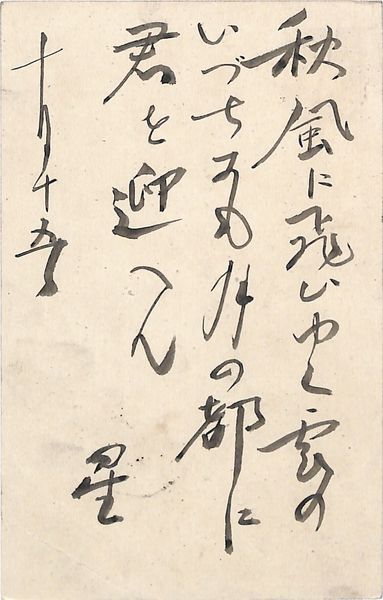 秋風に飛ひゆく雲の
いづち 月の都に
君を迎へん
星
十月十五日